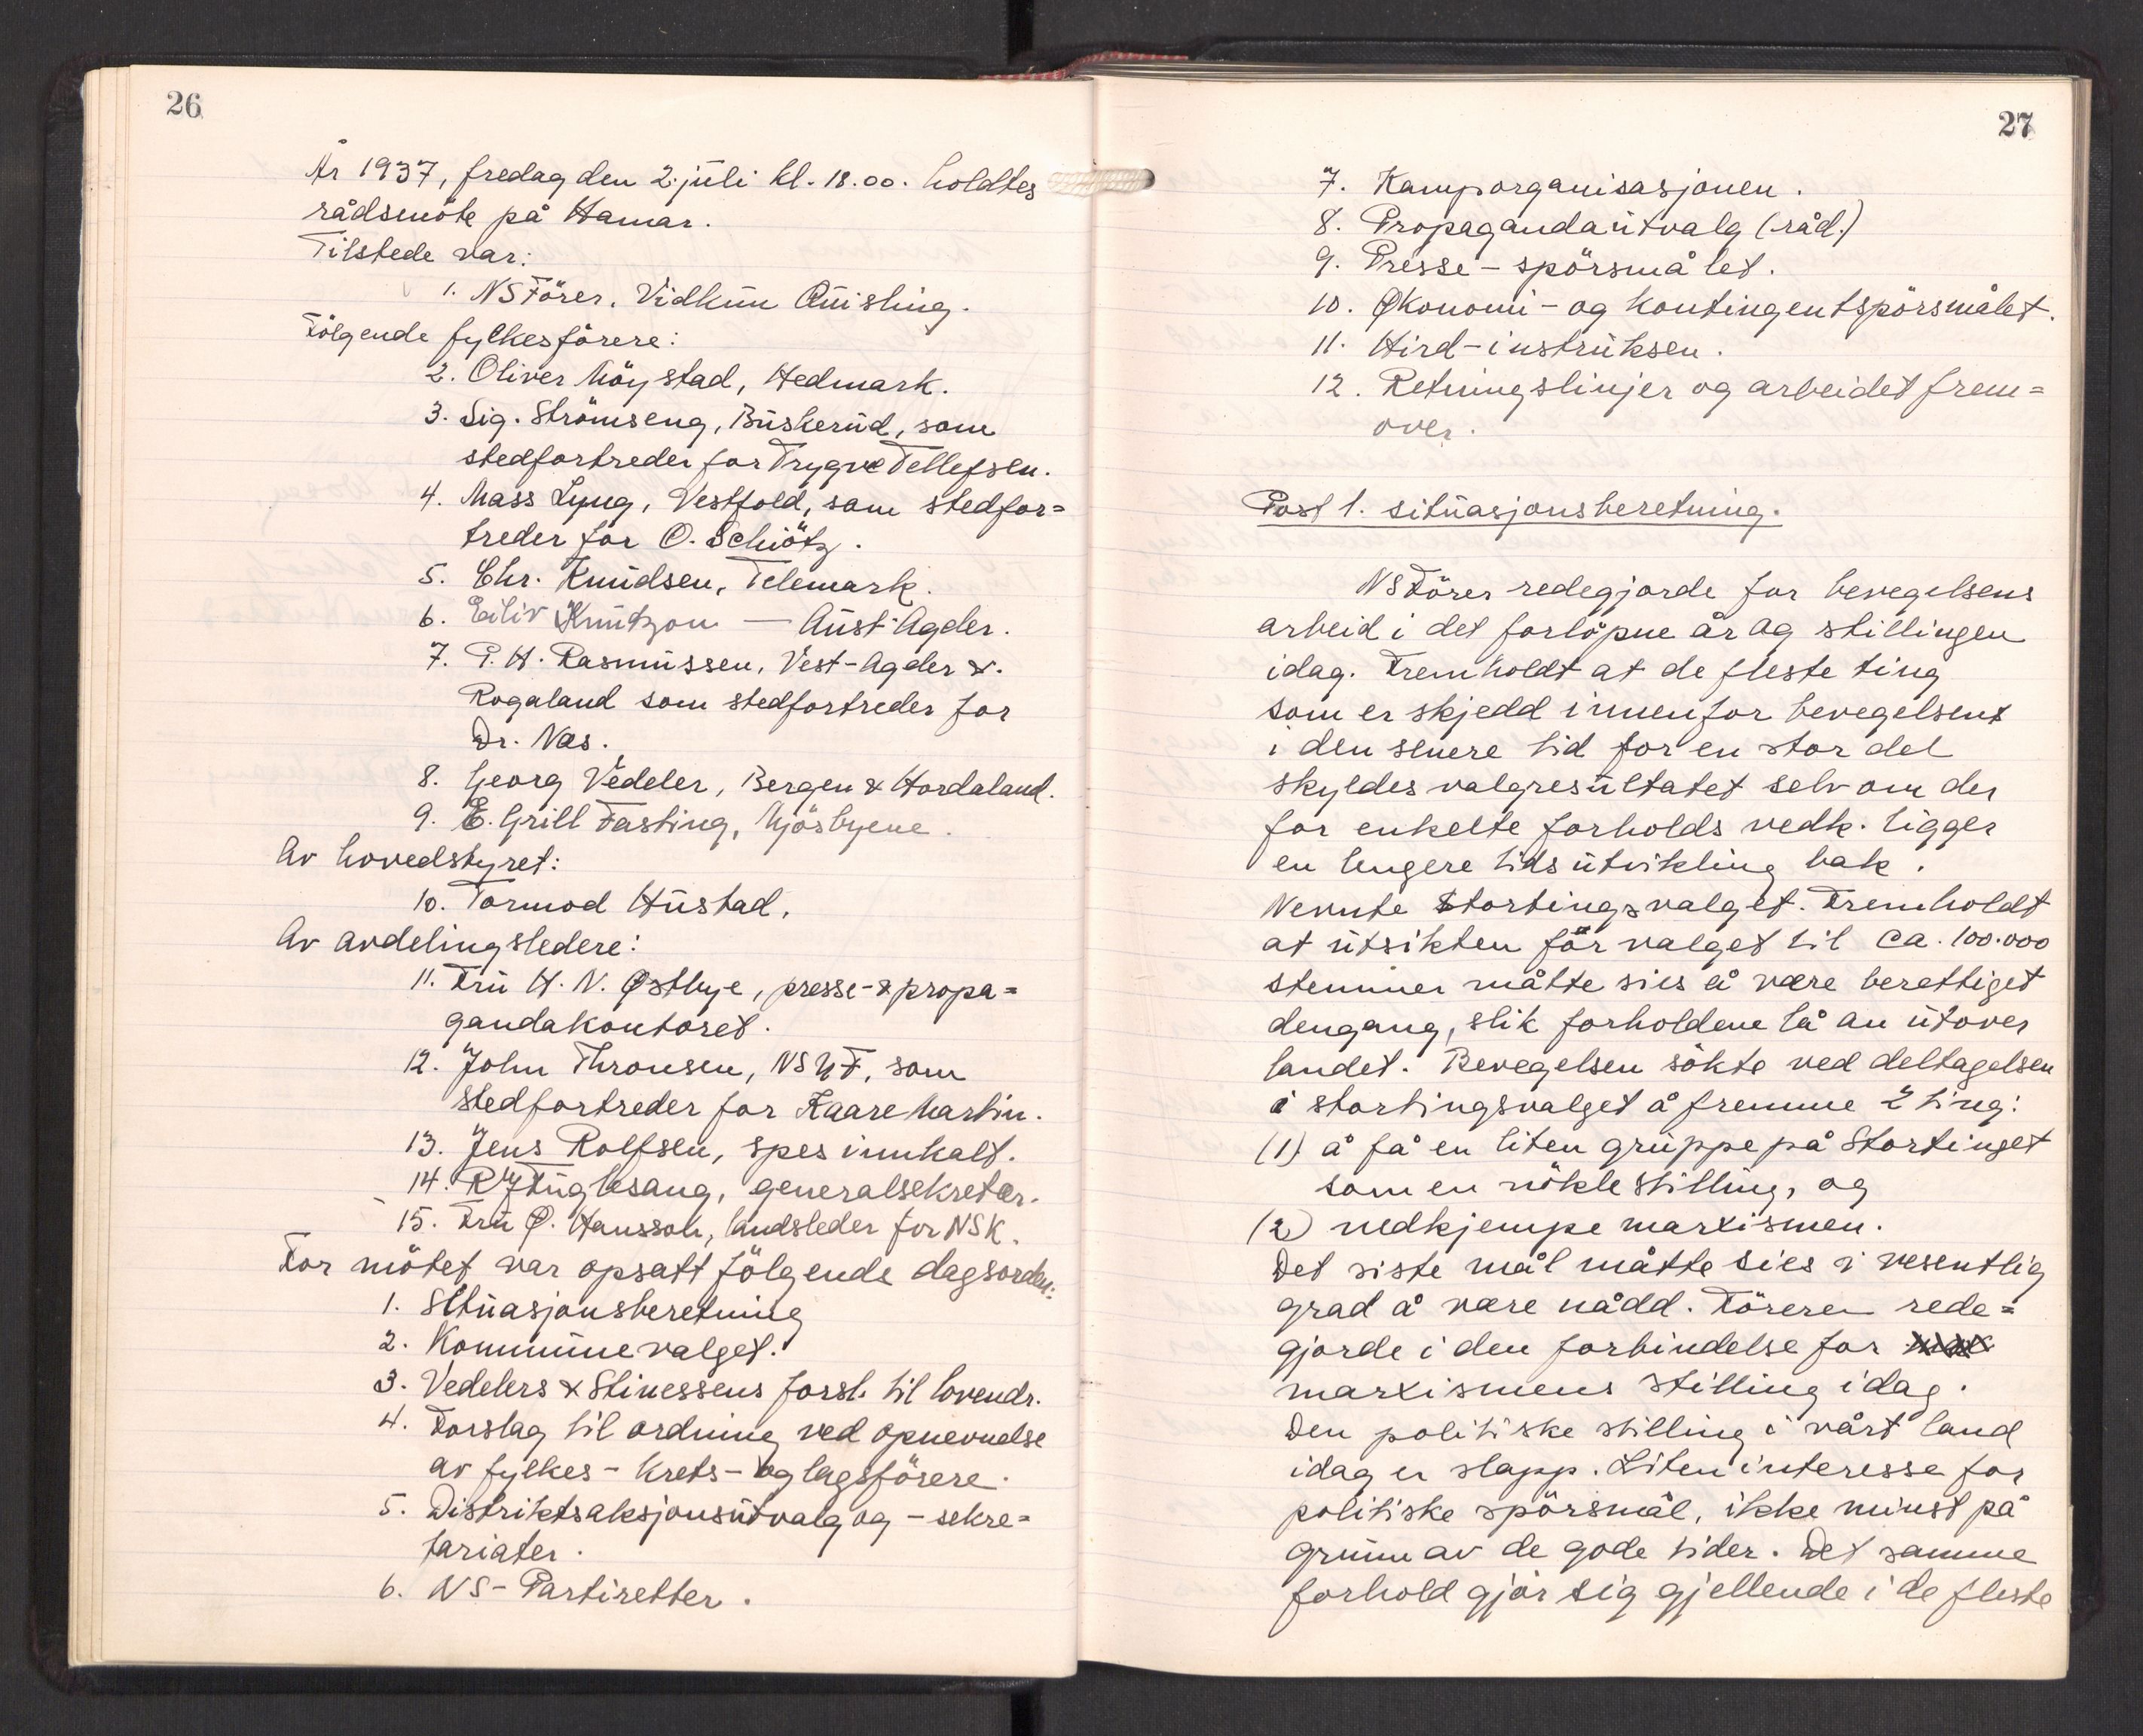 26
År 1937, fredag den 2. juli kl. 18.00. holdtes
rådsmöte på Hamar.
Tilstede var:
1. NS Förer, Vidkun Quisling.
Fölgende fylkesförere:
2. Oliver Möystad, Hedmark.
3. Sig. Strömseng, Buskerud, som
stedfortreder for Trygve Tellefsen.
4. Mass Lyng, Vestfold, som stedfor=
treder for O. Schiötz.
5. Chr. Knudsen, Telemark.
6. Eiliv Knutzon — Aust-Agder.
7. P. H. Rasmussen, Vest-Agder &
Rogaland som stedfortreder for
Dr. Næs.
8. Georg Vedeler, Bergen & Hordaland.
9. E. Grill Fasting, Mjösbyene.
Av hovedstyret:
10. Tormod Hustad.
Av avdelingsledere:
11. Fru H. N. Østbye, presse- & propa=
gandakontoret.
12. John Thronsen, NSUF, som
stedfortreder for Kaare Martin.
13. Jens Rolfsen, spes innkalt.
14. R. J. Fuglesang, generalsekretær.
15. Fru O. Hansson, landsleder for NSK.
For mötet var opsatt fölgende dagsorden:
1. Situasjonsberetning
2. Kommunevalget.
3. Vedelers & Stinessens forsl. til lovendr.
4. Forslag til ordning ved opnevnelse
av fylkes- krets- og lagsförere.
5. Distriktsaksjonsutvalg og - sekre=
tariater.
6. NS-Partiretter.
27
7. Kamporganisasjonen.
8. Propagandautvalg (råd.)
9. Presse-spörsmålet.
10. Økonomi- og kontingentspörsmålet.
11. Hird-instruksen.
12. Retningslinjer og arbeidet frem=
over.
Post 1. situasjonsberetning.
NS Förer redegjorde for bevegelsens
arbeid i det forlöpne år og stillingen
idag. Fremholdt at de fleste ting
som er skjedd innenfor bevegelsen
i den senere tid for en stor del
skyldes valgresultatet selv om der
for enkelte forholds vedk. ligger
en lengere tids utvikling bak.
Nevnte Stortingsvalget. Fremholdt
at utsikten för valget til ca. 100.000
stemmer måtte sies å være berettiget
dengang, slik forholdene lå an utover
landet. Bevegelsen sökte ved deltagelsen
i stortingsvalget å fremme 2 ting:
(1) å få en liten gruppe på Stortinget
som en nöklestilling, og
(2) nedkjempe marxismen.
Det siste mål måtte sies i vesentlig
grad å være nådd. Föreren rede=
gjorde i den forbindelse for
marxismens stilling idag.
Den politiske stilling i vårt land
idag er slapp. Liten interesse for
politiske spörsmål, ikke minst på
grunn av de gode tider. Det samme
forhold gjör sig gjellende i de fleste